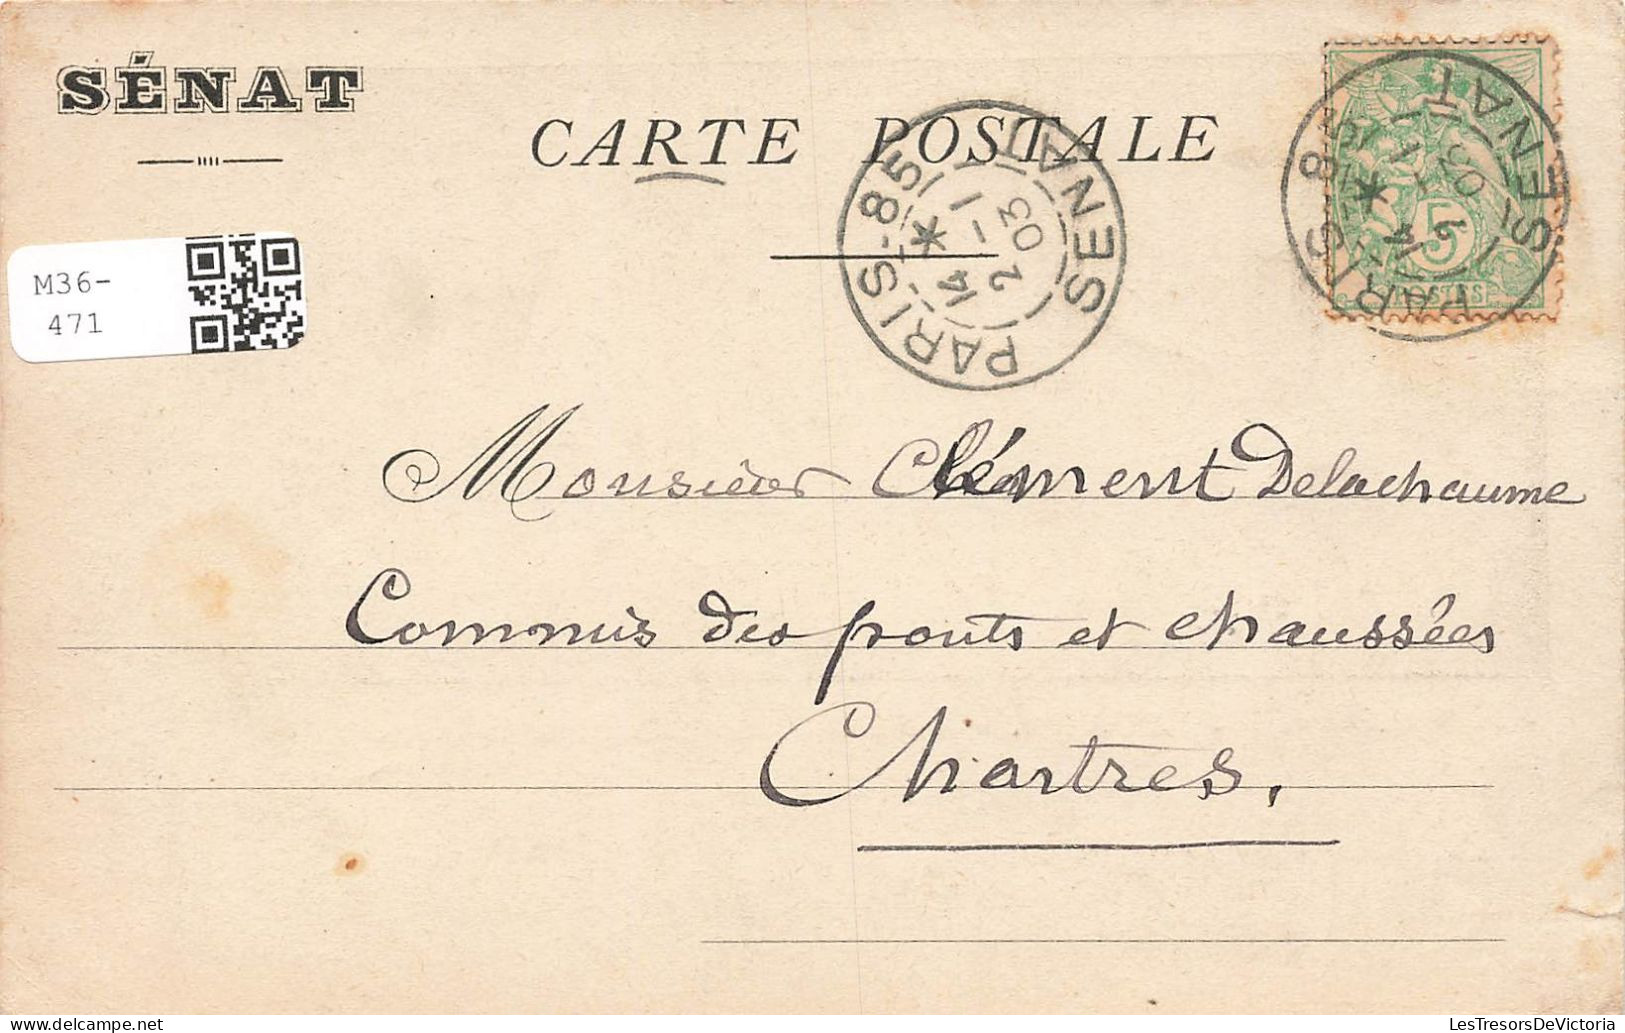 SÉNAT
CARTE POSTALE
PARIS-85
SENAT
*
14 - 1
2 03
PARIS 85
SENAT
*
14 1
2 03
5
POSTES
M36-
471
Monsieur Clément Delachaume
Commis des ponts et chaussées
Chartres.
LesTresorsDeVictoria